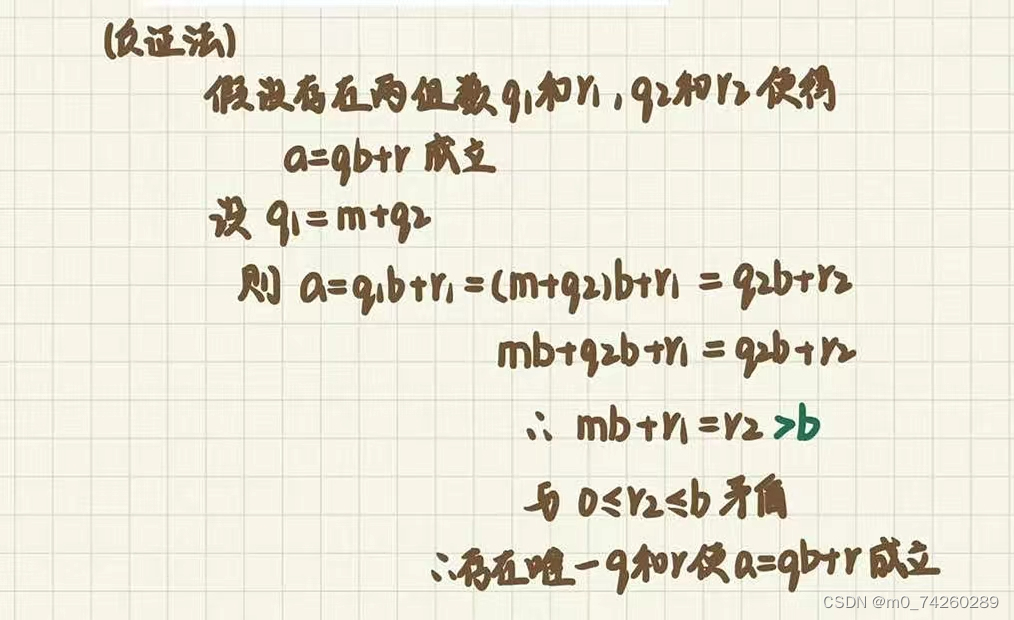 (反证法)
假设存在两组数q₁和r₁,q₂和r₂使得
a=qb+r 成立
设 q₁=m+q₂
则 a=q₁b+r₁=(m+q₂)b+r₁=q₂b+r₂
mb+q₂b+r₁=q₂b+r₂
∴ mb+r₁=r₂>b
与 0≤r₂≤b 矛盾
∴存在唯一q和r使a=qb+r成立
CSDN @m0_74260289